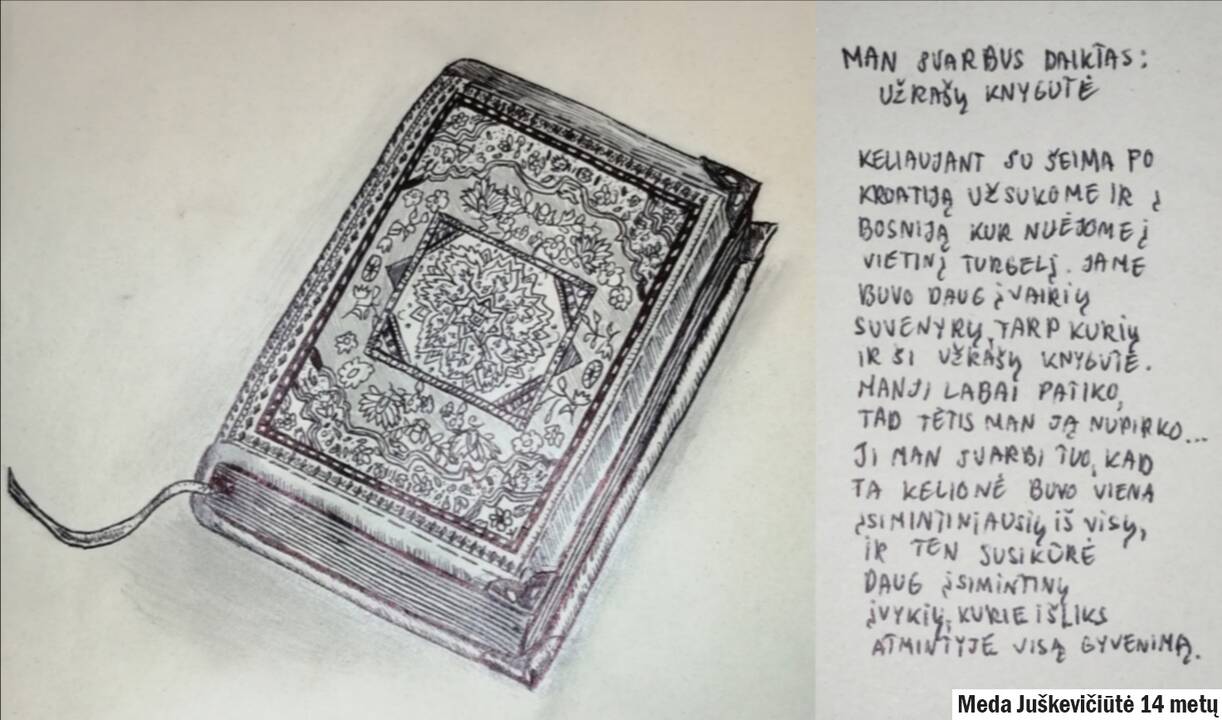 MAN SVARBUS DAIKTAS:
UŽRAŠŲ KNYGUTĖ
KELIAUJANT SU ŠEIMA PO
KROATIJĄ UŽSUKOME IR Į
BOSNIJĄ KUR NUĖJOME Į
VIETINĮ TURGELĮ. JAME
BUVO DAUG ĮVAIRIŲ
SUVENYRŲ, TARP KURIŲ
IR ŠI UŽRAŠŲ KNYGUTĖ.
MAN JI LABAI PATIKO,
TAD TĖTIS MAN JĄ NUPIRKO...
JI MAN SVARBI TUO, KAD
TA KELIONĖ BUVO VIENA
ĮSIMINTINIAUSIŲ IŠ VISŲ,
IR TEN SUSIKŪRĖ
DAUG ĮSIMINTINŲ
ĮVYKIŲ, KURIE IŠLIKS
ATMINTYJE VISĄ GYVENIMĄ.
Meda Juškevičiūtė 14 metų